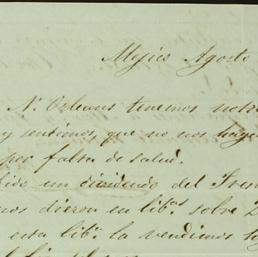 Mejico Agosto
N. Orleans tenemos noti
y sentimos, que no nos haya
por falta de salud.
un dividendo del Fren
nos dieron en lib.s sobre
esta lib.a la vendimos